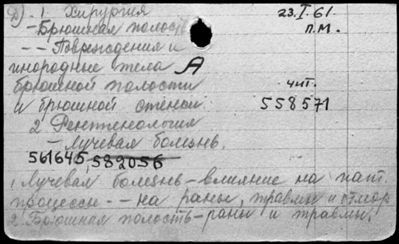 Д) 1. Хирургия 23.I.61.
- Брюшная полость п.м.
- - Повреждения и
инородные тела А
брюшной полости чит.
и брюшной стенки. 558571
2 Рентгенология
- Лучевая болезнь.
561645, 582056
1 Лучевая болезнь - влияние на пат.
процессы -- на раны, травмы и отмор.
2. Брюшная полость - раны и травмы.